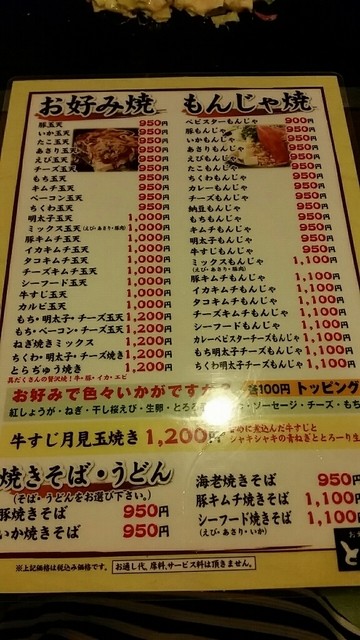 お好み焼
豚玉天 950円
いか玉天 950円
たこ玉天 950円
あさり玉天 950円
えび玉天 950円
チーズ玉天 950円
もち玉天 950円
キムチ玉天 950円
ベーコン玉天 950円
ちくわ玉天 950円
明太子玉天 1,000円
ミックス玉天(えび・あさり・豚肉) 1,000円
豚キムチ玉天 1,000円
イカキムチ玉天 1,000円
タコキムチ玉天 1,000円
チーズキムチ玉天 1,000円
シーフード玉天 1,000円
牛すじ玉天 1,000円
カルビ玉天 1,000円
もち・明太子・チーズ玉天 1,200円
もち・ベーコン・チーズ玉天 1,200円
ねぎ焼きミックス 1,200円
ちくわ・明太子・チーズ焼き 1,200円
とらぢゅう焼き 1,200円
具だくさんの贅沢焼!牛・豚・イカ・エビ
もんじゃ焼
ベビスターもんじゃ 900円
豚もんじゃ 950円
いかもんじゃ 950円
あさりもんじゃ 950円
えびもんじゃ 950円
たこもんじゃ 950円
ちくわもんじゃ 950円
カレーもんじゃ 950円
チーズもんじゃ 950円
納豆もんじゃ 950円
もちもんじゃ 950円
キムチもんじゃ 950円
明太子もんじゃ 950円
牛すじもんじゃ 950円
ミックスもんじゃ 1,100円
(えび・あさり・豚肉)
豚キムチもんじゃ 1,100円
イカキムチもんじゃ 1,100円
タコキムチもんじゃ 1,100円
チーズキムチもんじゃ 1,100円
シーフードもんじゃ 1,100円
カレーベビスターチーズもんじゃ 1,100円
もち明太子チーズもんじゃ 1,100円
ちくわ明太子チーズもんじゃ 1,100円
お好みで色々いかがですか 各100円 トッピング
紅しょうが・ねぎ・干し桜えび・生卵・とろろ ・ソーセージ・チーズ・もち
牛すじ月見玉焼き 1,200円
に煮込んだ牛すじと
シャキシャキの青ねぎととろーり生
焼きそば・うどん
(そば・うどんをお選び下さい。)
豚焼きそば 950円
いか焼きそば 950円
海老焼きそば 950円
豚キムチ焼きそば 1,100円
シーフード焼きそば 1,100円
(えび・あさり・いか)
※上記価格は税込み価格です。 お通し代、席料、サービス料は頂きません。